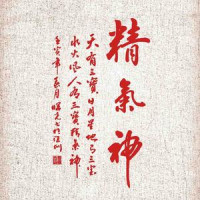 精氣神
天有三寶日月星地有三寶
水火風人有三寶精氣神
壬寅年月